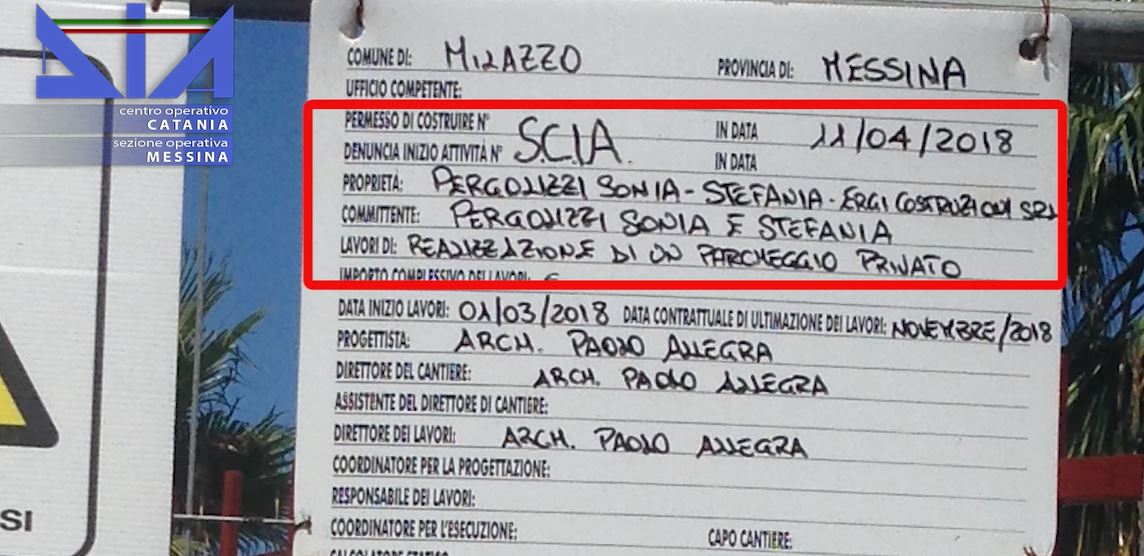 DIA
centro operativo
CATANIA
sezione operativa
MESSINA
COMUNE DI: MILAZZO PROVINCIA DI: MESSINA
UFFICIO COMPETENTE:
PERMESSO DI COSTRUIRE N° S.C.I.A. IN DATA 11/04/2018
DENUNCIA INIZIO ATTIVITÀ N° IN DATA
PROPRIETÀ: PERGOLIZZI SONIA - STEFANIA - ERGI COSTRUZIONI SRL
COMMITTENTE: PERGOLIZZI SONIA E STEFANIA
LAVORI DI: REALIZZAZIONE DI UN PARCHEGGIO PRIVATO
IMPORTO COMPLESSIVO DEI LAVORI: €
DATA INIZIO LAVORI: 01/03/2018 DATA CONTRATTUALE DI ULTIMAZIONE DEI LAVORI: NOVEMBRE/2018
PROGETTISTA: ARCH. PAOLO ALLEGRA
DIRETTORE DEL CANTIERE: ARCH. PAOLO ALLEGRA
ASSISTENTE DEL DIRETTORE DI CANTIERE:
DIRETTORE DEI LAVORI: ARCH. PAOLO ALLEGRA
COORDINATORE PER LA PROGETTAZIONE:
RESPONSABILE DEI LAVORI:
SI
COORDINATORE PER L'ESECUZIONE: CAPO CANTIERE:
CALCOLATORE STATICO